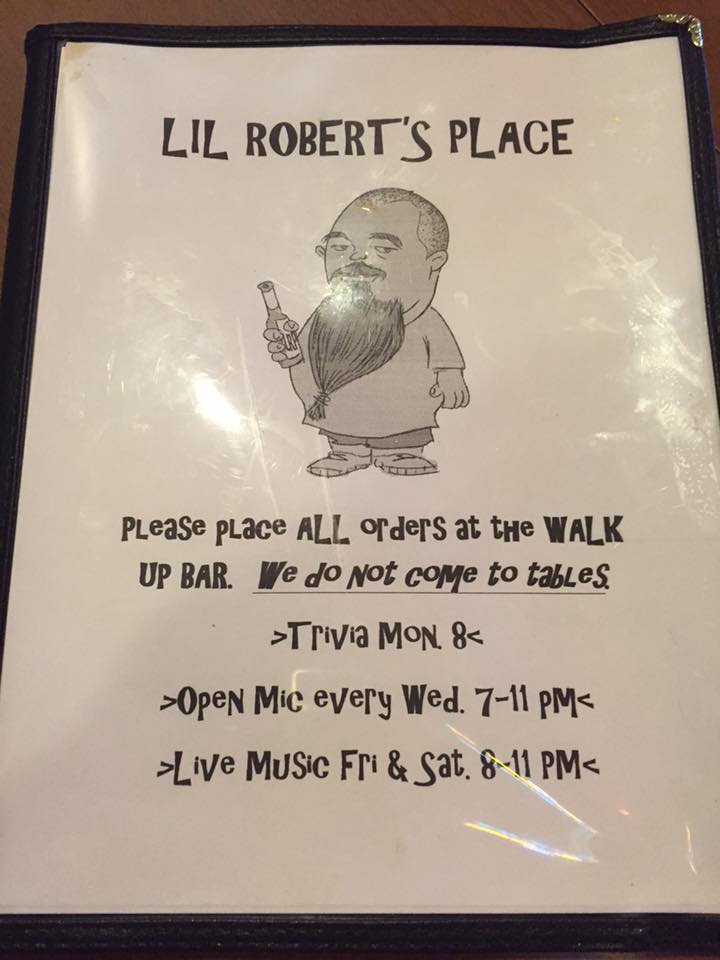 LIL ROBERT'S PLACE
Please place ALL orders at the WALK
UP BAR. We do not come to tables.
>Trivia Mon. 8<
>Open Mic every Wed. 7-11 PM<
>Live Music Fri & Sat. 8-11 PM<